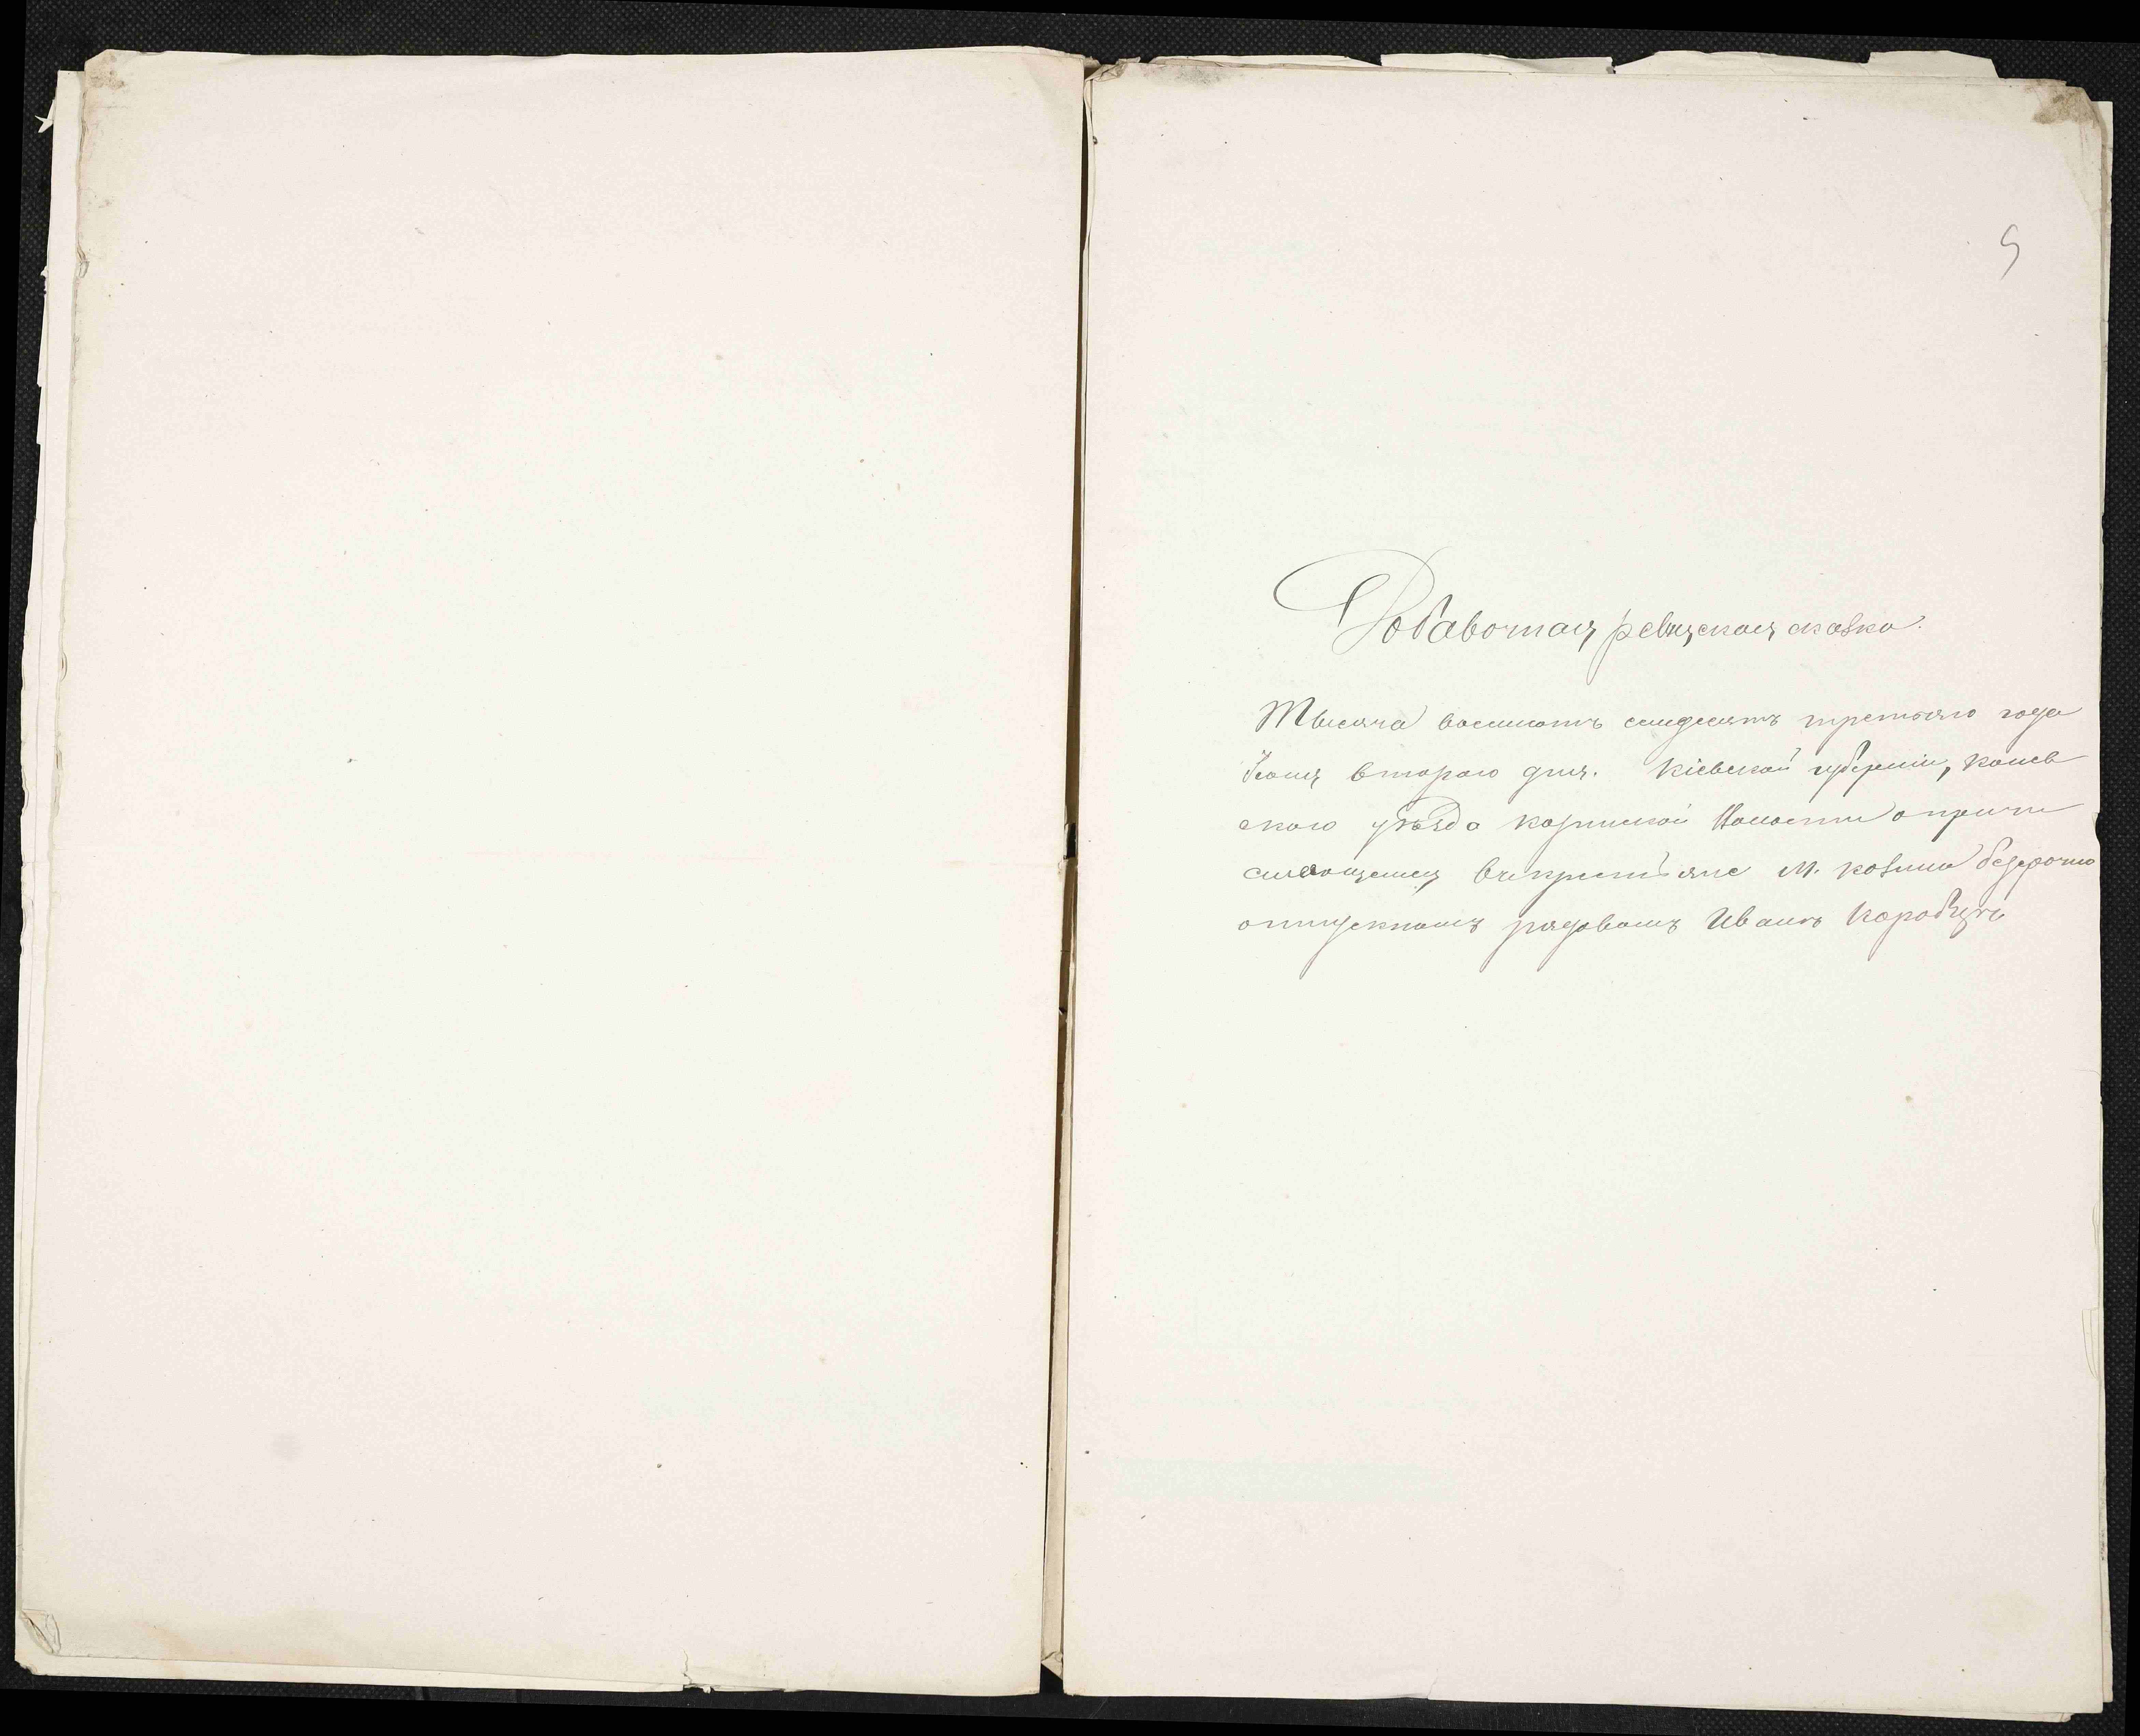 5
Добавочная ревизская сказка.
Тысяча восемсотъ семдесятъ третьяго года
второго дня. Кіевской губерніи, Канев
ского уѣзда Козинской Волости опричи
сляющемся въ крестьяне М. Козина безсрочно
отпускномъ рядовомъ Иванѣ